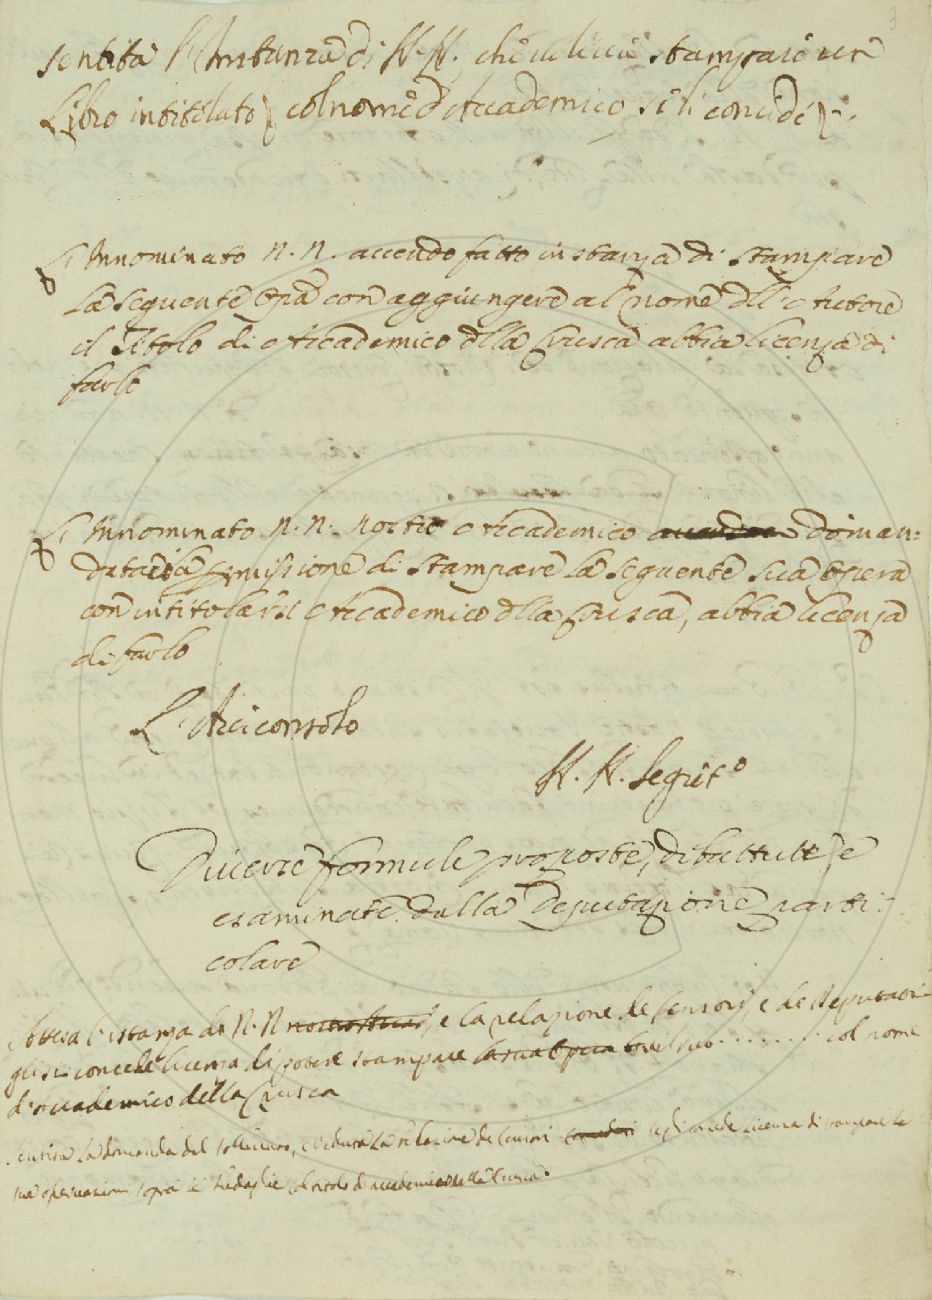 3
Sentita l'Instanza di N. N. che vole stampare un
Libro intitolato col nome d'Accademico se li concede
L'Innominato N. N. avendo fatto instanza di stampare
la seguente Opa con aggiungere al nome dll'Autore
il Titolo di Accademico dlla Crusca abbia licenza di
farlo
L'Innominato N. N. nostro Accademico doman:
data ci la pmissione di stampare la seguente sua opera
con intitolarsi Accademico dlla Crusca, abbia licenza
di farlo
L'Arciconsolo
N. N. Segret.o
Diverse formule proposte, dibattute, e
esaminate dalla Deputazione parti:
colare
Attesa l'istanza di N. N. e la relazione de Censori, e de Deputati
gli si concede licenza di potere stampare col nome
d'Accademico della Crusca
Sentita la domanda del sollecito, e veduta la relazione de Censori se gli concede licenza di stampare le
sue osservazioni sopra le Medaglie col titolo d'Accademico della Crusca.